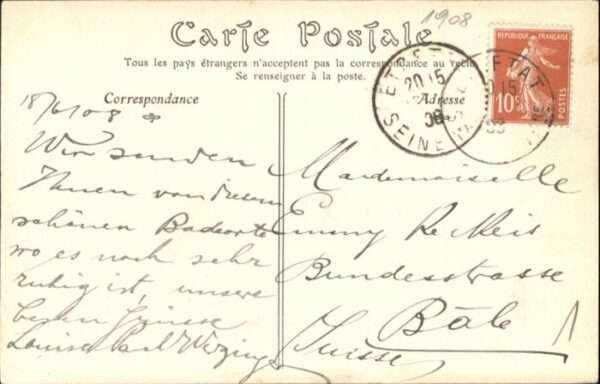 1908
Carte Postale
Tous les pays étrangers n'acceptent pas la correspondance au recto
Se renseigner à la poste.
Correspondance
Adresse
18/6 08
Wir senden
Ihnen von diesem
schönen Badeorte
wo es noch sehr
ruhig ist, unsere
besten Grüsse
Louise Paul
Mademoiselle
Emmy
Bundesstrasse
Bâle
Suisse
REPUBLIQUE FRANÇAISE
10c
POSTES
20 15
08
SEINE
ETAT